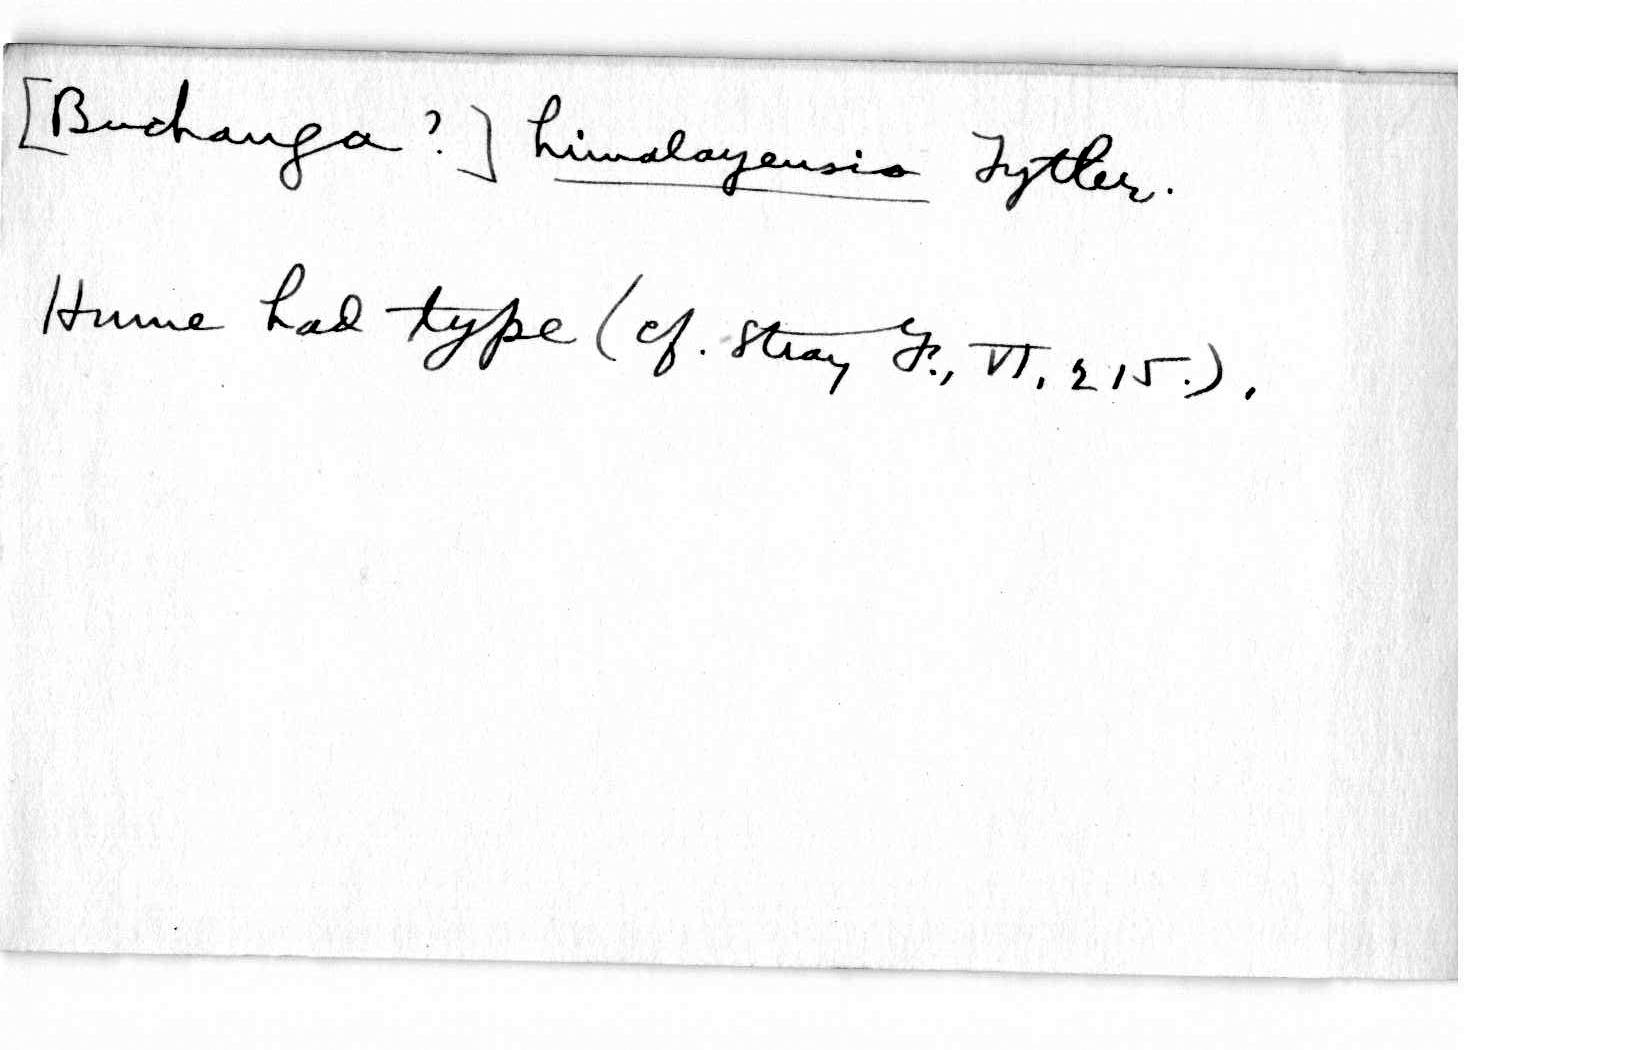 [Buchanga ?] himalayensis Tytler.
Hume had type (cf. Stray F., VI, 215.).